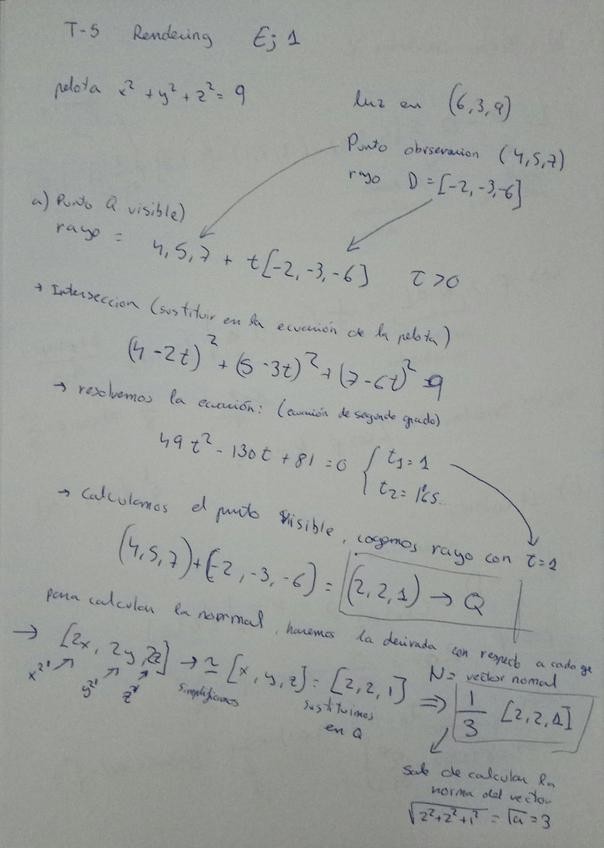 T-5 Rendering Ej 1
pelota x² + y² + z² = 9
luz en (6,3,9)
Punto observacion (4,5,7)
rayo D = [-2, -3, -6]
a) Punto Q visible)
rayo = 4,5,7 + t[-2, -3, -6] t > 0
→ Interseccion (sustituir en la ecuación de la pelota)
(4 - 2t)² + (5 - 3t)² + (7 - 6t)² = 9
→ resolvemos la ecuación: (ecuación de segundo grado)
49t² - 130t + 81 = 0 { t₁ = 1
t₂ = 1'65..
→ Calculamos el punto visible, cogemos rayo con t = 1
(4,5,7) + (-2, -3, -6) = (2,2,1) → Q
para calcular la normal, haremos la derivada con respecto a cada eje
→ [2x, 2y, 2z] → ≃ [x, y, z] = [2,2,1] ⇒ 1/3 [2,2,1]
N = vector normal
x²' y²' z²'
simplificamos
sustituimos
en Q
sale de calcular la
norma del vector
√2²+2²+1² = √9 = 3